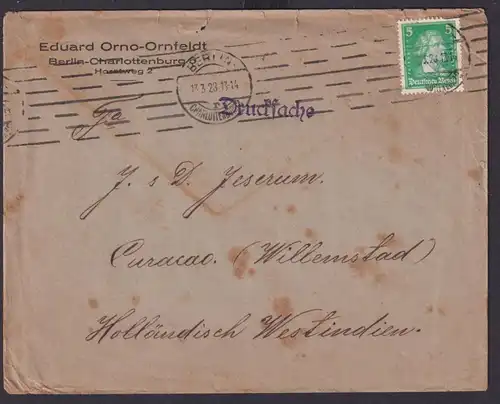 Eduard Orno-Ornfeldt
Berlin-Charlottenburg
Horstweg 2
BERLIN
13.3.28.13-14
CHARLOTTENBURG
5 5
Deutsches Reich
Drucksache
Fa
J. s D. Jeserum.
Curacao. (Willemstad)
Holländisch Westindien.